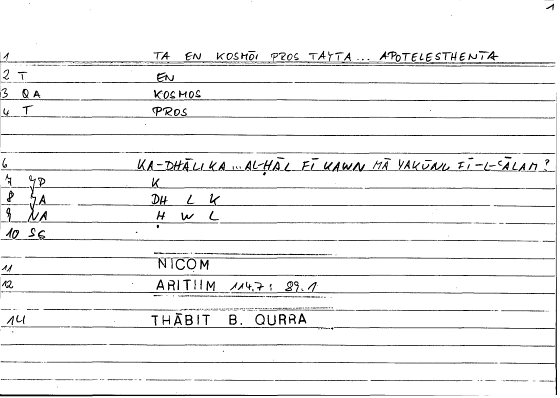 1
1 TA EN KOSMŌI PROS TAYTA ... APOTELESTHENTA
2 T EN
3 QA KOSMOS
4 T PROS
6 KA-DHĀLIKA ... AL-ḤĀL FĪ KAWN MĀ YAKŪNU FĪ-L-ʿĀLAM ?
7 K
8 DH L K
9 NA Ḥ W L
10 SG
11 NICOM
12 ARITIIM 114.7 : 89.1
14 THĀBIT B. QURRA